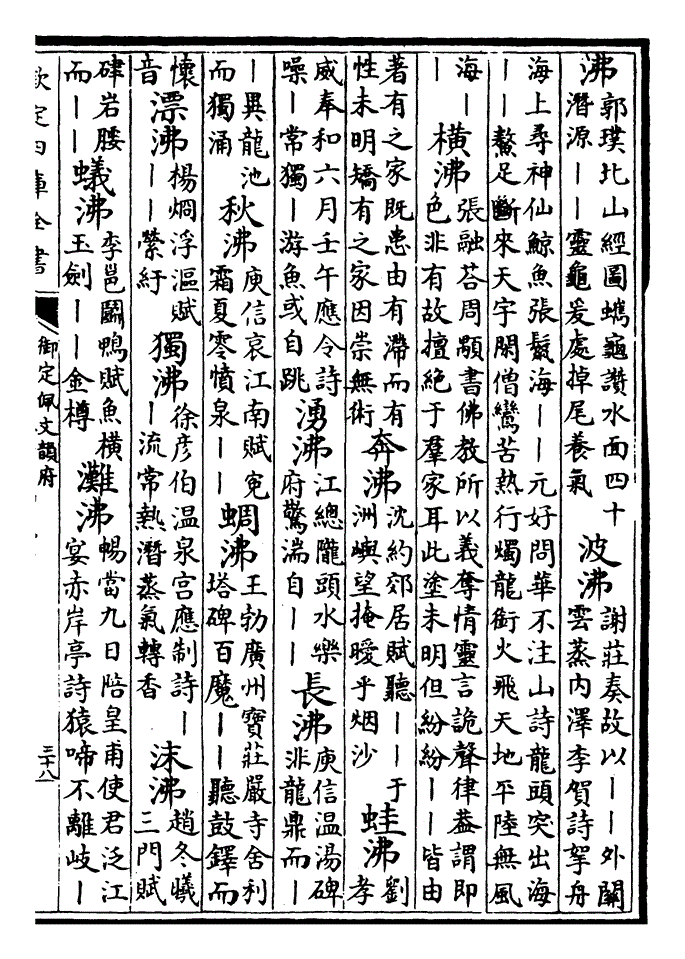 沸 郭璞北山經圖蟕龜讚水面四十潛源——靈龜爰處掉尾養氣 波沸 謝莊奏故以——外關雲蒸内澤李賀詩拏舟
海上尋神仙鯨魚張鬛海——元好問華不注山詩龍頭突出海——鰲足斷來天宇閑僧鸞苦熱行燭龍銜火飛天地平陸無風
海—— 橫沸 張融荅周顒書佛教所以義奪情靈言詭聲律葢謂即色非有故擅絶于羣家耳此塗未明但紛紛——皆由
著有之家既患由有滯而有性未明矯有之家因崇無術 奔沸 沈約郊居賦聽——于洲嶼望掩曖乎烟沙 蛙沸 劉孝
威奉和六月壬午應令詩噪—常獨—游魚或自跳 湧沸 江總隴頭水樂府驚湍自—— 長沸 庾信温湯碑非龍鼎而—
—異龍池而獨涌 秋沸 庾信哀江南賦寃霜夏零憤泉—— 蜩沸 王勃廣州寶莊嚴寺舍利塔碑百魔——聽鼓鐸而
懷音 漂沸 楊烱浮漚賦——縈紆 獨沸 徐彦伯温泉宫應制詩——流常熱潛蒸氣轉香 沫沸 趙冬曦三門賦
硉岩腰而—— 蟻沸 李邕鬭鴨賦魚橫玉劍——金樽 灘沸 暢當九日陪皇甫使君泛江宴赤岸亭詩猿啼不離岐—
欽定四庫全書
御定佩文韻府
三十八